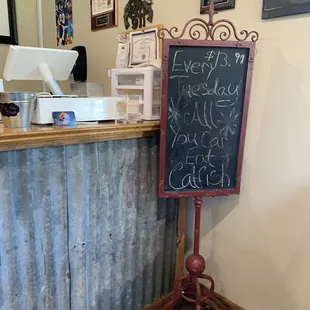 $13.99
Every
Tuesday
All
You Can
Eat
Catfish